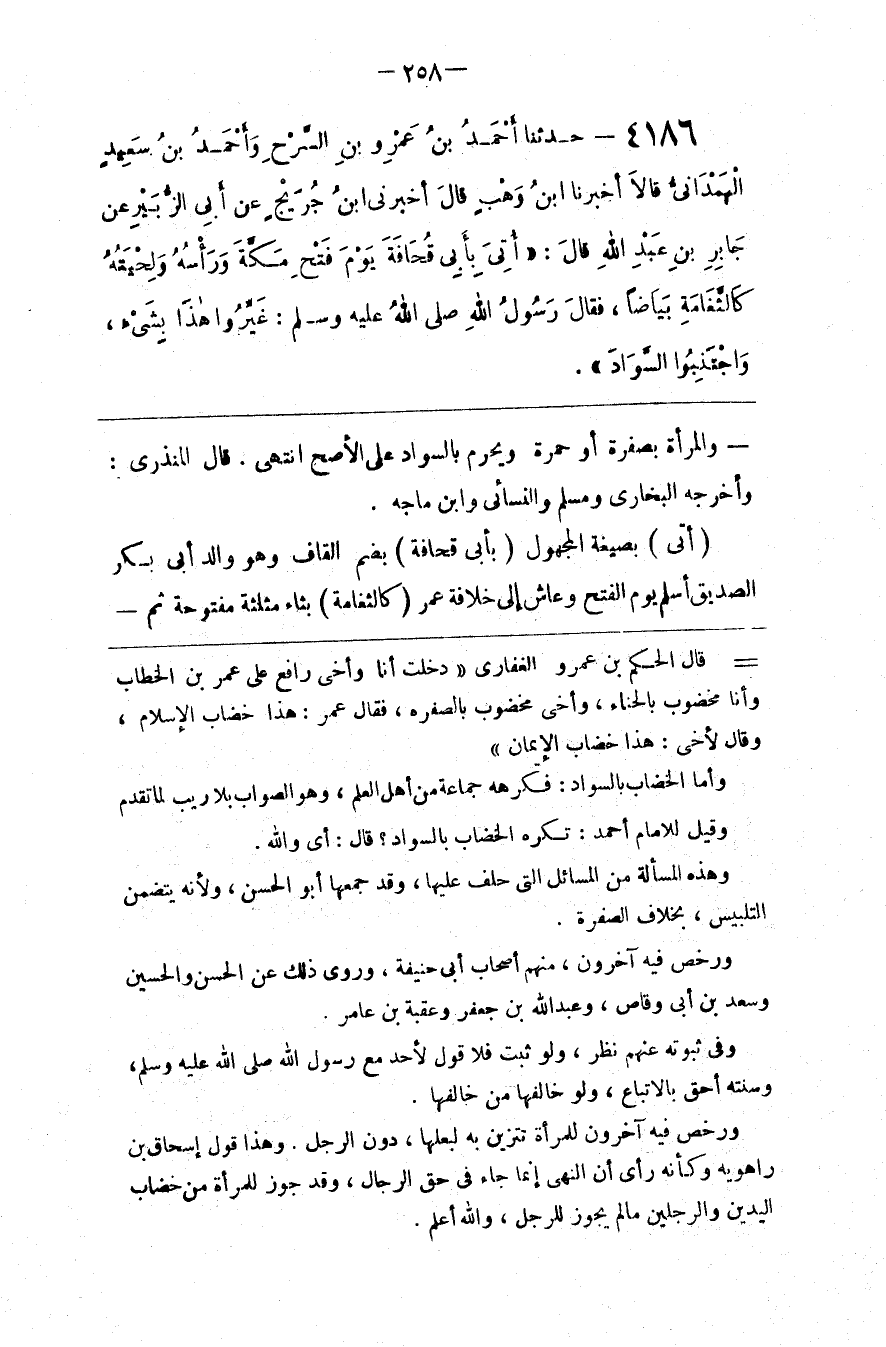 — ٢٥٨ —
٤١٨٦ — حدثنا أَحْمَدُ بنُ عَمْرِو بنِ السَّرْحِ وَأَحْمَدُ بنُ سَعِيدٍ
الْهَمْدَانىُّ قالاَ أخبرنا ابنُ وَهْبٍ قالَ أخبرنى ابنُ جُرَيْجٍ عن أَبِى الزُّبَيْرِ عن
جَابِرِ بنِ عَبْدِ اللهِ قالَ : « أُتِىَ بِأَبِى قُحَافَةَ يَوْمَ فَتْحِ مَكَّةَ وَرَأْسُهُ وَلِحْيَتُهُ
كَالثَّغَامَةِ بَيَاضاً ، فقالَ رَسُولُ اللهِ صلى اللهُ عليه وسلم : غَيِّرُوا هٰذَا بِشَىْءٍ ،
وَاجْتَنِبُوا السَّوَادَ » .
— والمرأة بصفرة أو حمرة ويحرم بالسواد على الأصح انتهى . قال المنذرى :
وأخرجه البخارى ومسلم والنسائى وابن ماجه .
( أتى ) بصيغة المجهول ( بأبى قحافة ) بضم القاف وهو والد أبى بكر
الصديق أسلم يوم الفتح وعاش إلى خلافة عمر ( كالثغامة ) بثاء مثلثة مفتوحة ثم —
= قال الحكم بن عمرو الغفارى « دخلت أنا وأخى رافع على عمر بن الخطاب
وأنا مخضوب بالحناء ، وأخى مخضوب بالصفره ، فقال عمر : هذا خضاب الإسلام ،
وقال لأخى : هذا خضاب الإيمان »
وأما الخضاب بالسواد : فكرهه جماعة من أهل العلم ، وهو الصواب بلا ريب لما تقدم
وقيل للامام أحمد : تكره الخضاب بالسواد ؟ قال : أى والله .
وهذه المسألة من المسائل التى حلف عليها ، وقد جمعها أبو الحسن ، ولأنه يتضمن
التلبيس ، بخلاف الصفرة .
ورخص فيه آخرون ، منهم أصحاب أبى حنيفة ، وروى ذلك عن الحسن والحسين
وسعد بن أبى وقاص ، وعبدالله بن جعفر وعقبة بن عامر .
وفى ثبوته عنهم نظر ، ولو ثبت فلا قول لأحد مع رسول الله صلى الله عليه وسلم ،
وسنته أحق بالاتباع ، ولو خالفها من خالفها .
ورخص فيه آخرون للمرأة تتزين به لبعلها ، دون الرجل . وهذا قول إسحاق بن
راهويه وكأنه رأى أن النهى إنما جاء فى حق الرجال ، وقد جوز للمرأة من خضاب
اليدين والرجلين مالم يجوز للرجل ، والله أعلم .